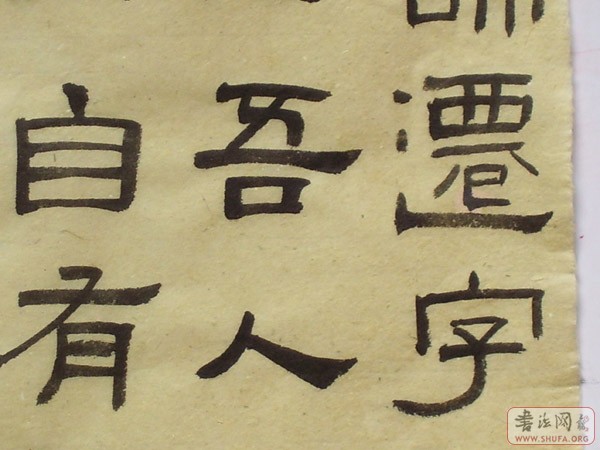 遷字
吾人
自有
书法网
WWW.SHUFA.ORG